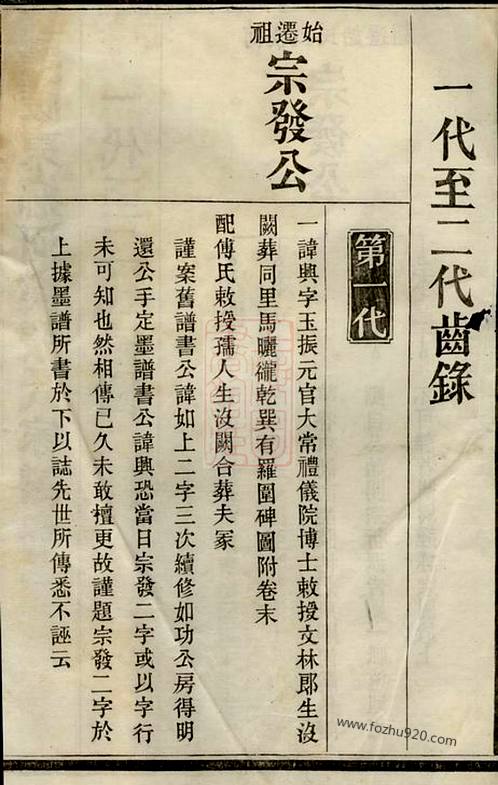 一代至二代齒錄
第一代
始遷祖
宗發公
一諱興字玉振元官大常禮儀院博士敕授文林郎生沒
闕葬同里馬曬𥻘乾巽有羅圍碑圖附卷末
配傅氏敕授孺人生沒闕合葬夫冢
謹案舊譜書公諱如上二字三次續修如功公房得明
還公手定墨譜書公諱興恐當日宗發二字或以字行
未可知也然相傳已久未敢擅更故謹題宗發二字於
上據墨譜所書於下以誌先世所傳悉不誣云
www.fozhu920.com